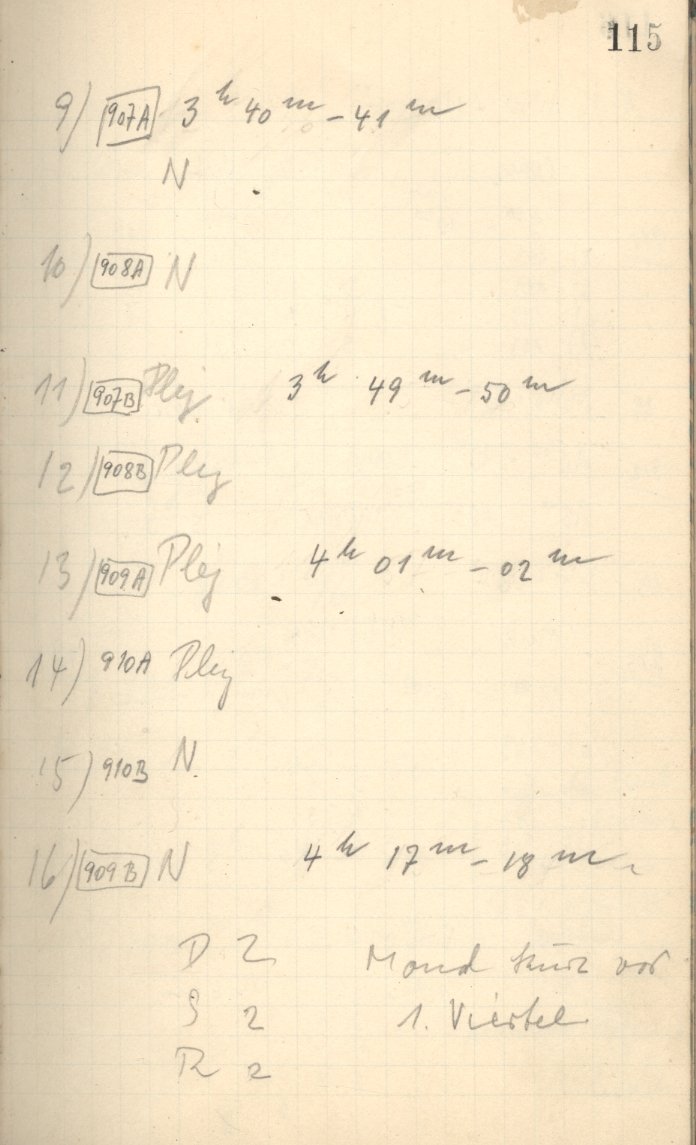 115
9) 907A 3h 40m - 41m
N
10) 908A N
11) 907B Plej 3h 49m - 50m
12) 908B Plej
13) 909A Plej 4h 01m - 02m
14) 910A Plej
15) 910B N
16) 909B N 4h 17m - 18m.
D 2 Mond kurz vor
S 2 1. Viertel
R 2